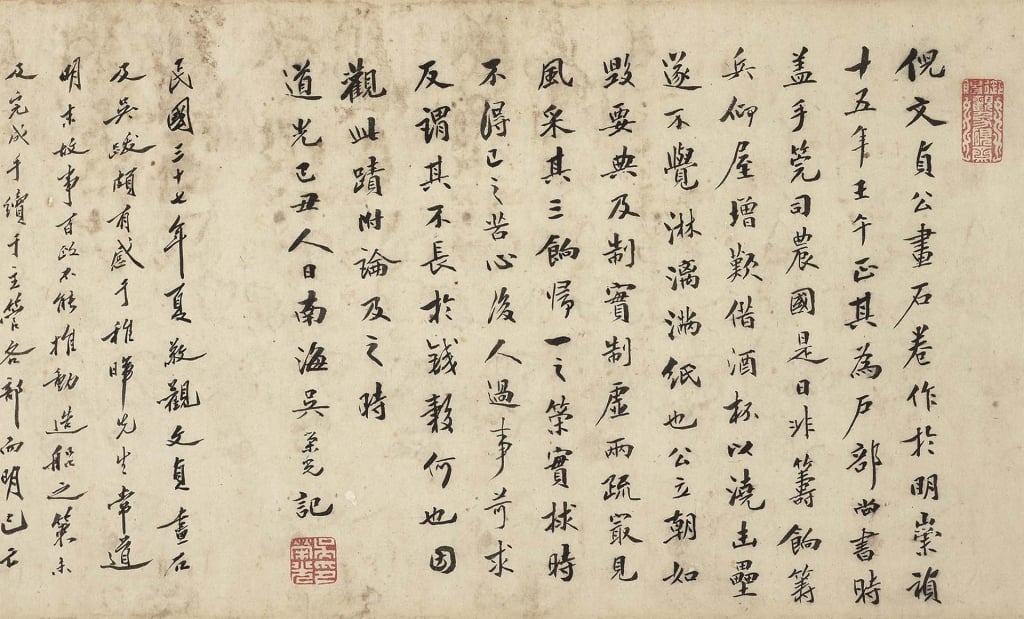 倪文貞公畫石卷作於明崇禎
十五年壬午正其為戶部尚書時
盖手筦司農國是日非籌餉籌
兵仰屋增歎借酒杯以澆凷壘
遂不覺淋漓滿紙也公立朝如
毀要典及制實制虛兩疏㝡見
風采其三餉歸一之策實捄時
不得已之苦心後人過事苛求
反謂其不長於錢穀何也因
觀此蹟附論及之時
道光己丑人日南海吳榮光記
民國三十七年夏敬觀文貞畫石
及吳跋頗有感于稚暉先生常道
明末故事百政不能推動造船之策未
及完成手續于主管各部而明已亡